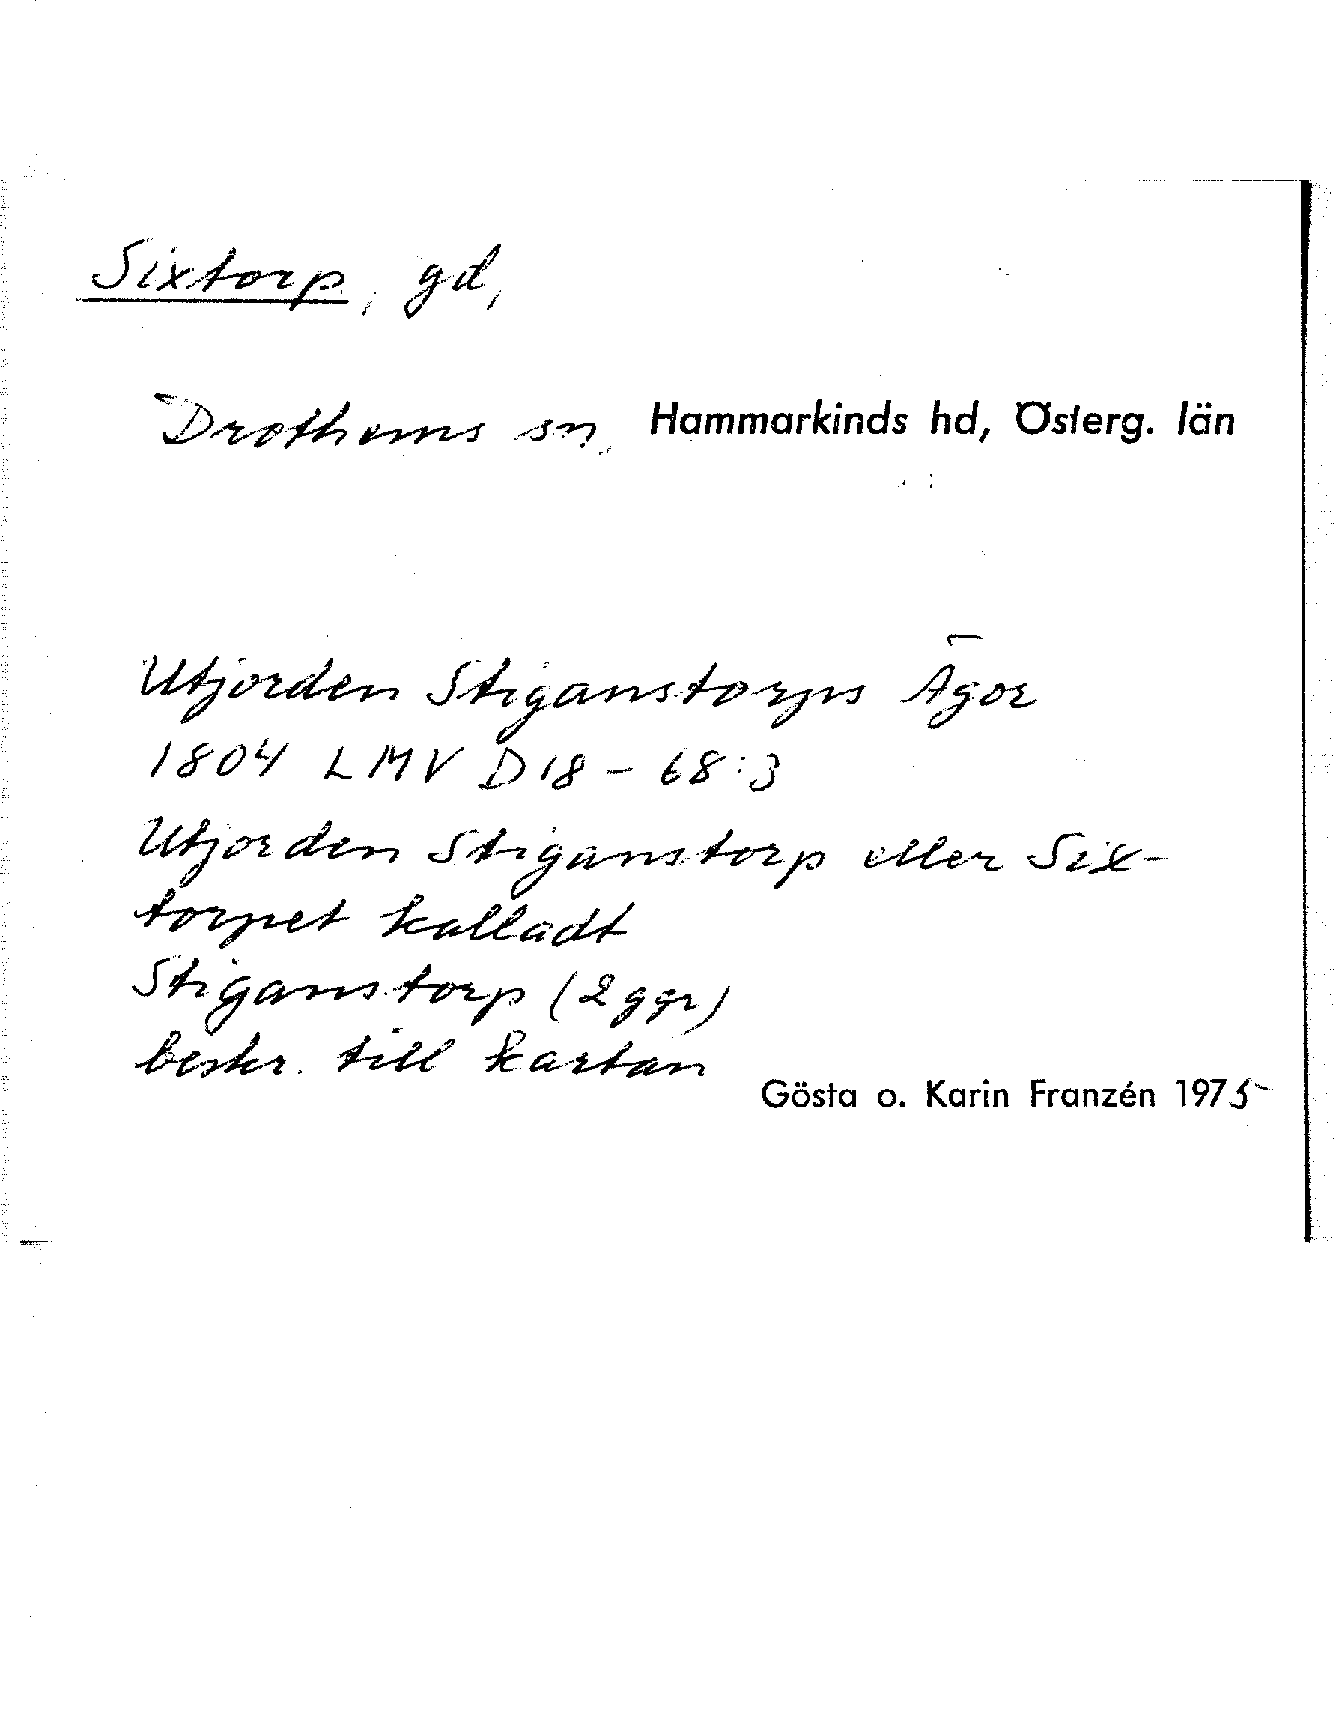 Sixtorp, gd,
Drothems sn, Hammarkinds hd, Österg. län
Utjorden Stiganstorps Ägor
1804 LMV D18-68:3
Utjorden Stiganstorp eller Six-
torpet kalladt
Stiganstorp (2 ggr)
beskr. till kartan
Gösta o. Karin Franzén 1975